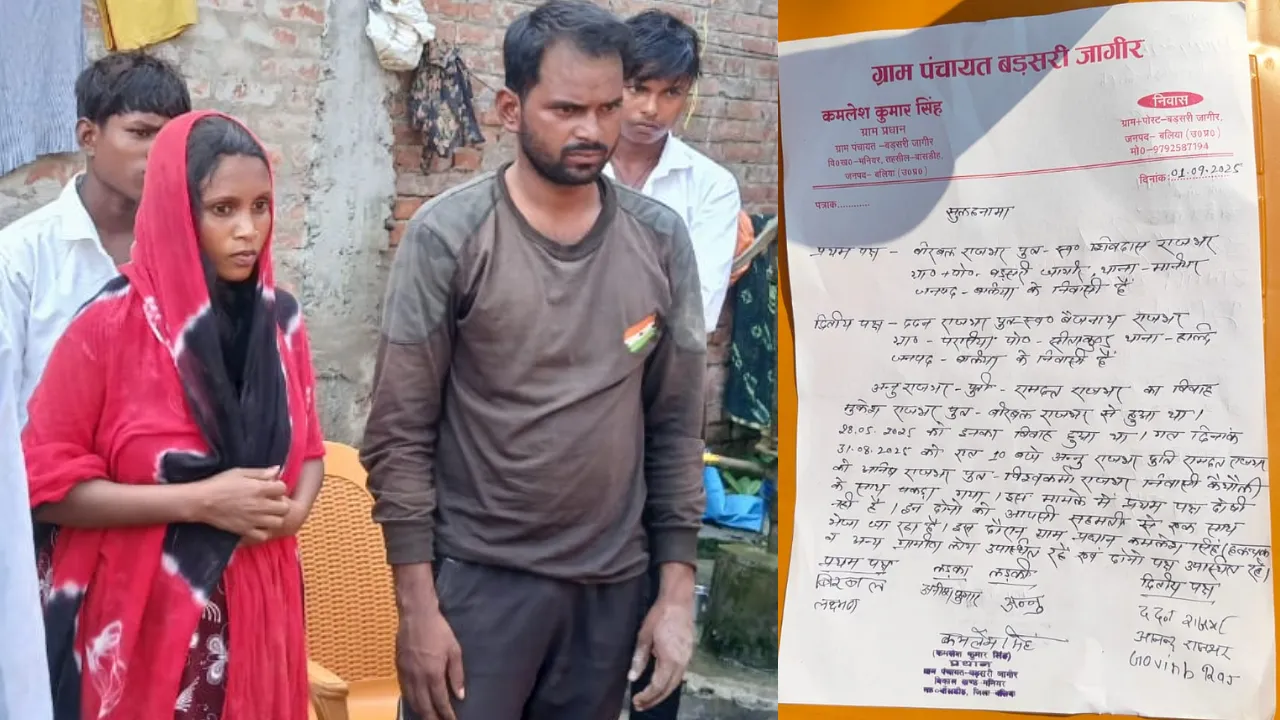 ग्राम पंचायत बड़सरी जागीर
कमलेश कुमार सिंह
ग्राम प्रधान
ग्राम पंचायत -बड़सरी जागीर
वि०ख०-मनियर, तहसील-बांसडीह,
जनपद- बलिया (उ०प्र०)
निवास
ग्राम+पोस्ट-बड़सरी जागीर,
जनपद- बलिया (उ०प्र०)
मो०-9792587194
पत्रांक............
दिनांक 01.09.2025
सुलहनामा
प्रथम पक्ष - बीरबल राजभर पुत्र- स्व० शिवदास राजभर
ग्रा०+पो० बड़सरी जागीर, थाना-मनियर
जनपद-बलिया के निवासी हैं
द्वितीय पक्ष - ददन राजभर पुत्र-स्व० बैजनाथ राजभर
ग्रा० - पो० - सीताकुण्ड थाना - हल्दी
जनपद - बलिया के निवासी हैं
अन्नु राजभर - पुत्री - रामदत्त राजभर का विवाह
मुकेश राजभर पुत्र - बीरबल राजभर से हुआ था।
28.05.2025 को इनका विवाह हुआ था। गत दिनांक
31.08.2025 को रात 10 बजे अन्नु राजभर पुत्री रामदत्त राजभर
को राजभर पुत्र - विश्वकर्मा राजभर निवासी
के साथ पकड़ा गया। इस मामले में प्रथम पक्ष दोषी
नहीं है। इन दोनों को आपसी सहमती से एक साथ
भेजा जा रहा है। इस दौरान ग्राम प्रधान कमलेश सिंह
व अन्य ग्रामीण लोग उपस्थित रहे एवं दोनों पक्ष उपस्थित रहे।
प्रथम पक्ष लड़का लड़की द्वितीय पक्ष
बिरबल अन्नु
ददन राजभर
राजभर
Govinb Raj
कमलेश सिंह
(कमलेश कुमार सिंह)
प्रधान
ग्राम पंचायत-बड़सरी जागीर
विकास खण्ड मनियर
त०-बांसडीह, जिला बलिया